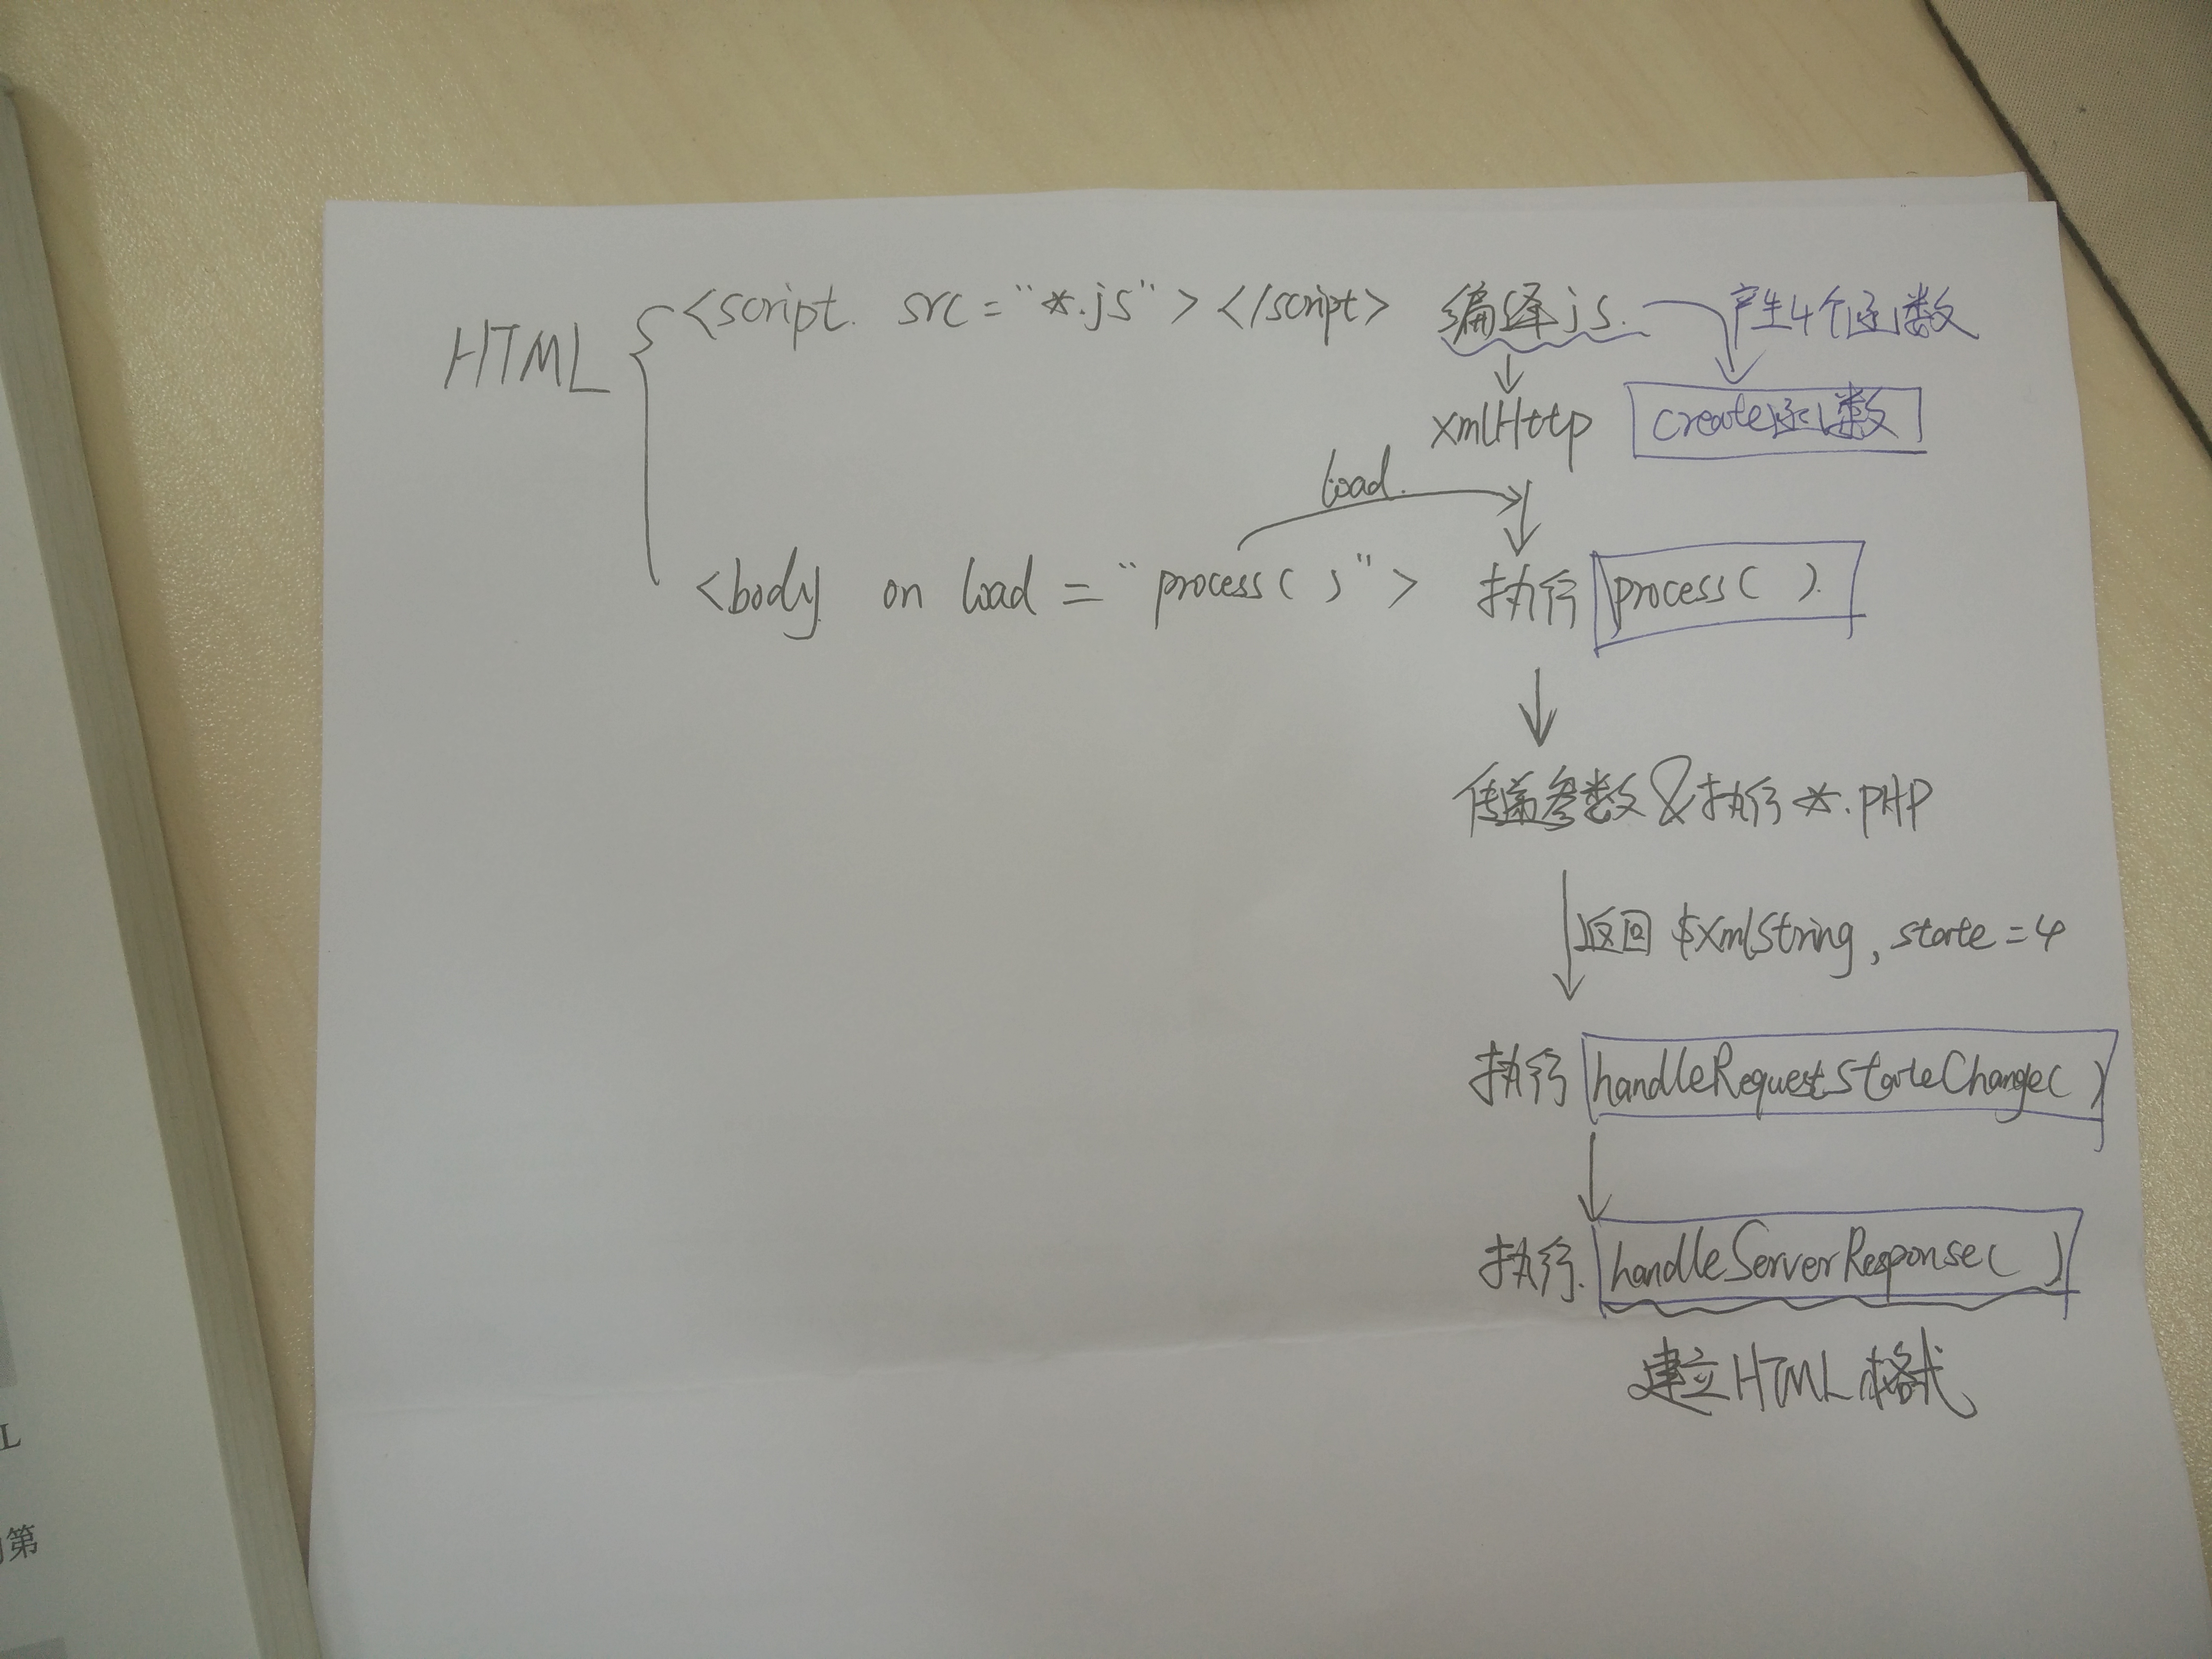 HTML
<script src="*.js"></script> 编译js. 产生4个函数
xmlHttp create函数
load.
<body on load="process()"> 执行 process( ).
传递参数&执行*.PHP
返回 $xmlString, state=4
执行 handleRequestStateChange( )
执行. handleServerResponse( )
建立HTML格式
L
第